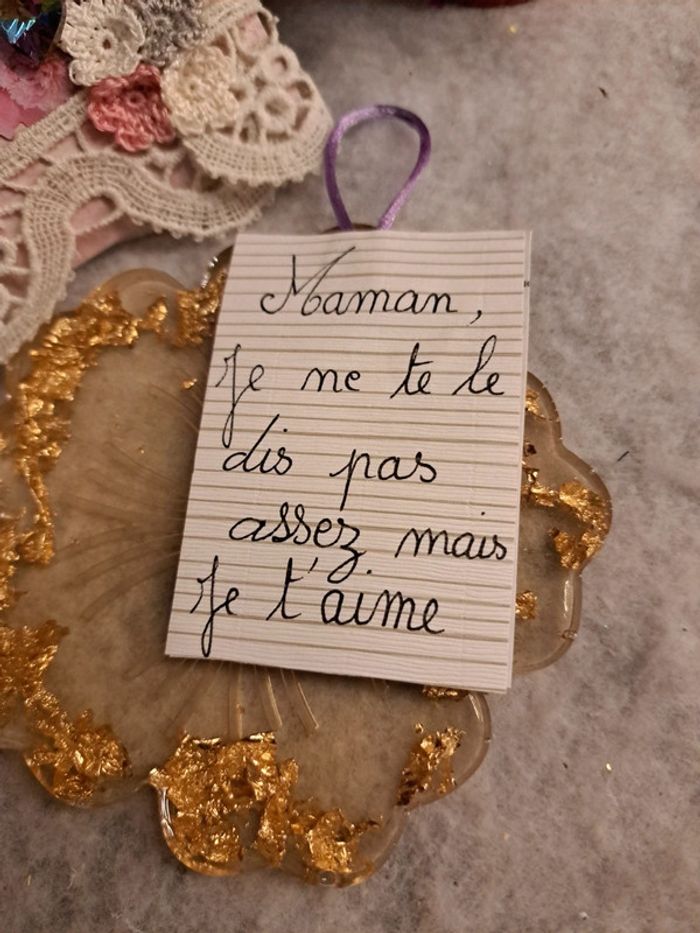 Maman,
Je ne te le
dis pas
assez mais
Je t'aime